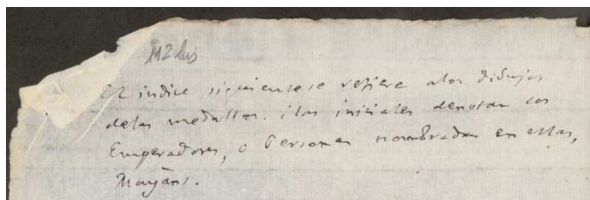 112 bis
El indice siguiente se refiere a los dibujos
de las medallas. i las iniciales denotan los
Emperadores, o Personas nombradas en ellas,
Mayans.